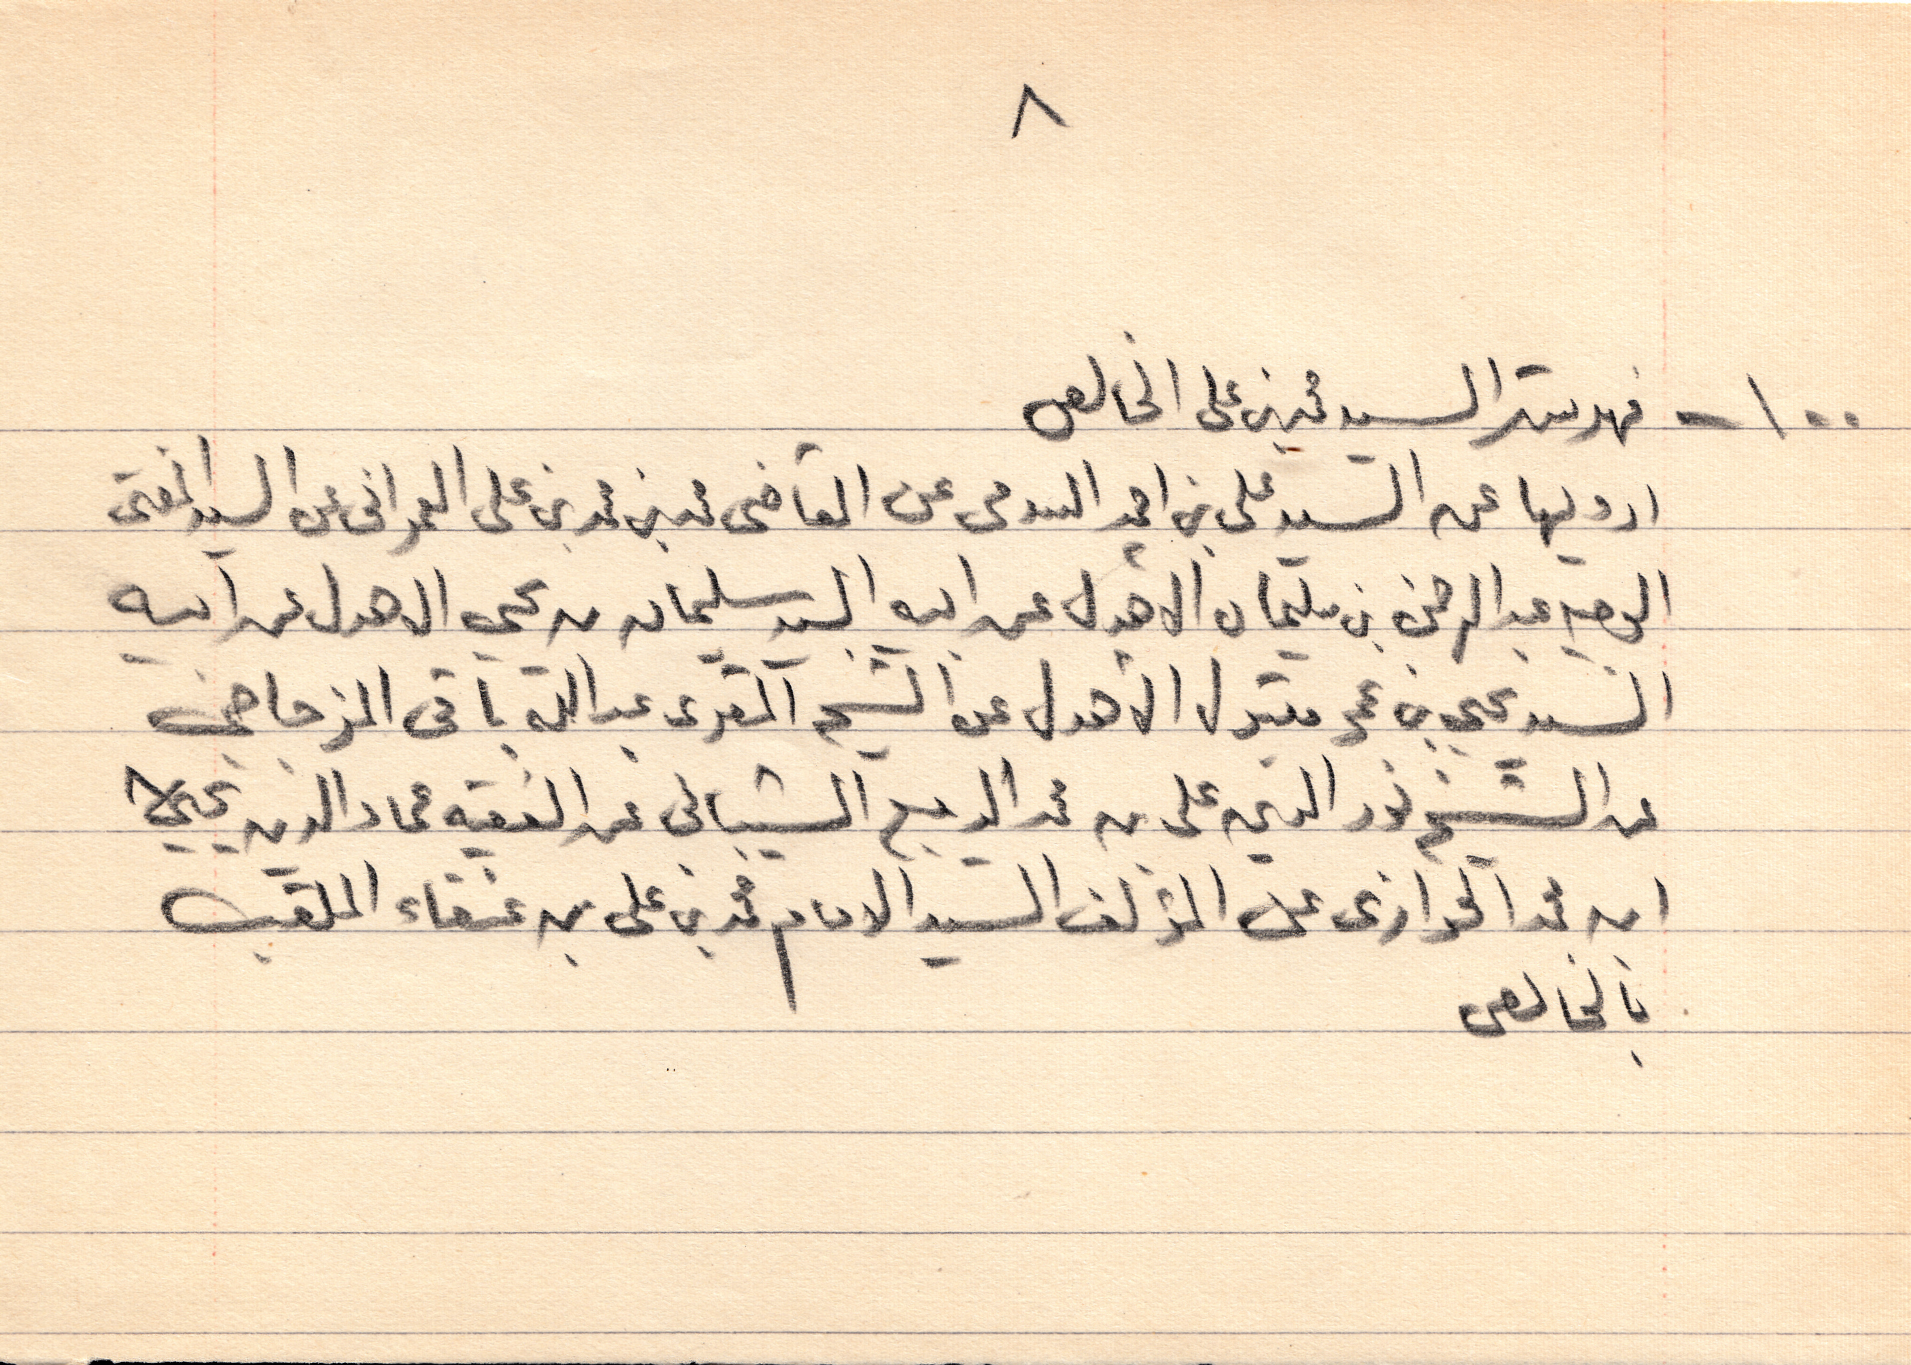 ٨
١٠٠ - فهرست السيد محمد بن على الخالص
ارويها عن السيد على بن احمد السدمى عن القاضى محمد بن محمد بن على العمرانى عن السيد المفتى
الوجيه عبد الرحمن بن سليمان الأهدل عن ابيه السيد سليمان بن يحيى الاهدل عن ابيه
السيد يحيى بن عمر مقبول الأهدل عن الشيخ المقرى عبد الله باقى المزجاجى
عن الشيخ نور الدين على بن محمد الديبع الشيبانى عن الفقيه عماد الدين يحيى
ابن محمد الحرازى عن المؤلف السيد الامام محمد بن على بن عنقاء الملقب
بالخالص